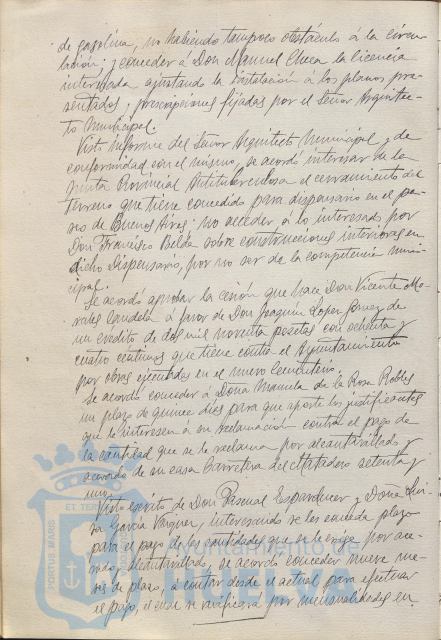 de gasolina, no habiendo tampoco obstáculo á la circu-
lación; y conceder á Don Manuel Checa la licencia
interesada ajustando la instalación á los planos pre-
sentados y prescripciones fijadas por el Señor Arquitec-
to Municipal.
Visto informe del Señor Arquitecto Municipal y de
conformidad con el mismo, se acordó interesar de la
Junta Provincial Antituberculosa el cerramiento del
terreno que tiene concedido para dispensario en el pa-
seo de Buenos Aires; no acceder á lo interesado por
Don Francisco Belda sobre construcciones interiores en
dicho Dispensario, por no ser de la competencia muni-
cipal.
Se acordó aprobar la cesión que hace Don Vicente Mo-
rales Candela á favor de Don Joaquín Lopez Gomez de
un crédito de dos mil noventa pesetas con ochenta y
cuatro céntimos que tiene contra el Ayuntamiento
por obras ejecutadas en el nuevo Cementerio.
Se acordó conceder á Doña Manuela de la Rosa Robles
un plazo de quince días para que aporte los justificantes
que le interesen á su reclamación contra el pago de
la cantidad que se le reclama por alcantarillado y
acerado de su casa Carretera del Matadero setenta y
uno.
Visto escrito de Don Pascual Esparducer y Doña Lui-
sa García Vazquez, interesando se les conceda plazo
para el pago de las cantidades que se le exige por ace-
rado y alcantarillado, se acordó conceder nueve me-
ses de plazo, á contar desde el actual para efectuar
el pago, el cual se verificará por mensualidades en
PORTUS MARIS
ET TERRAE
Ayuntamiento de
HUELVA